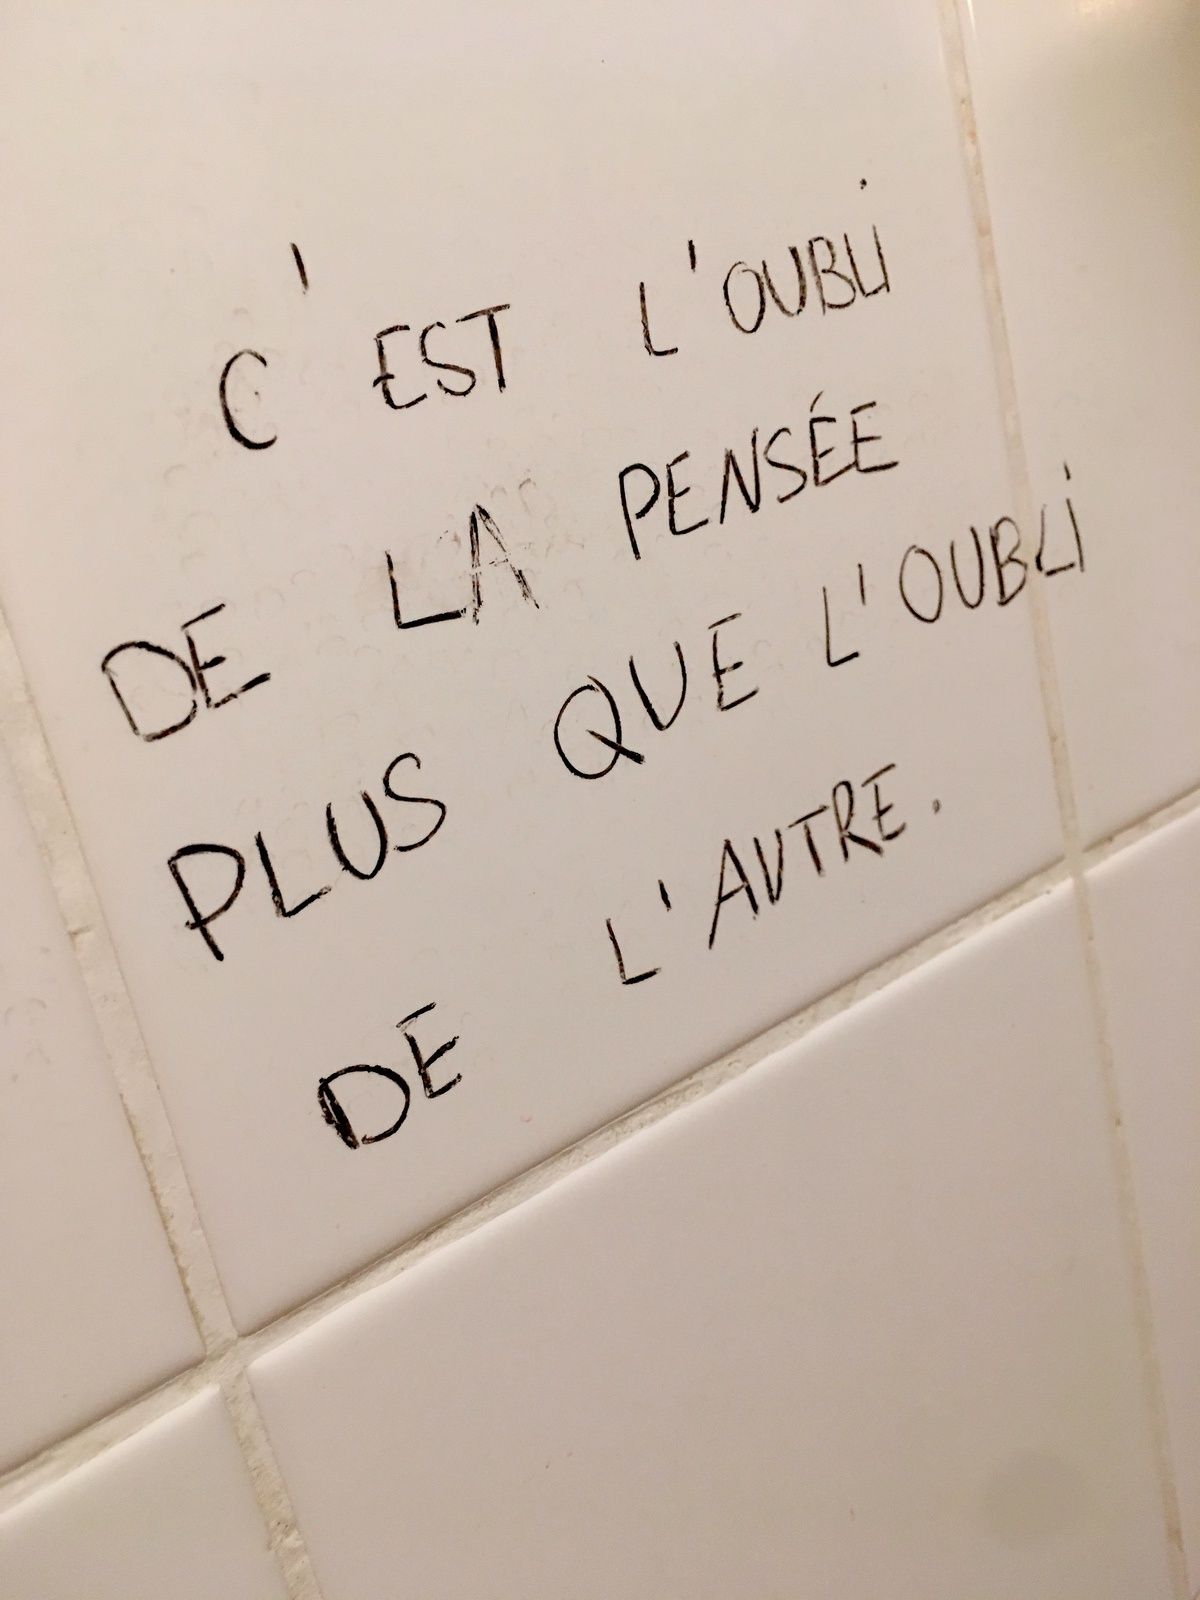 C'EST L'OUBLi
DE LA PENSÉE
PLUS QUE L'OUBLi
DE L'AUTRE.